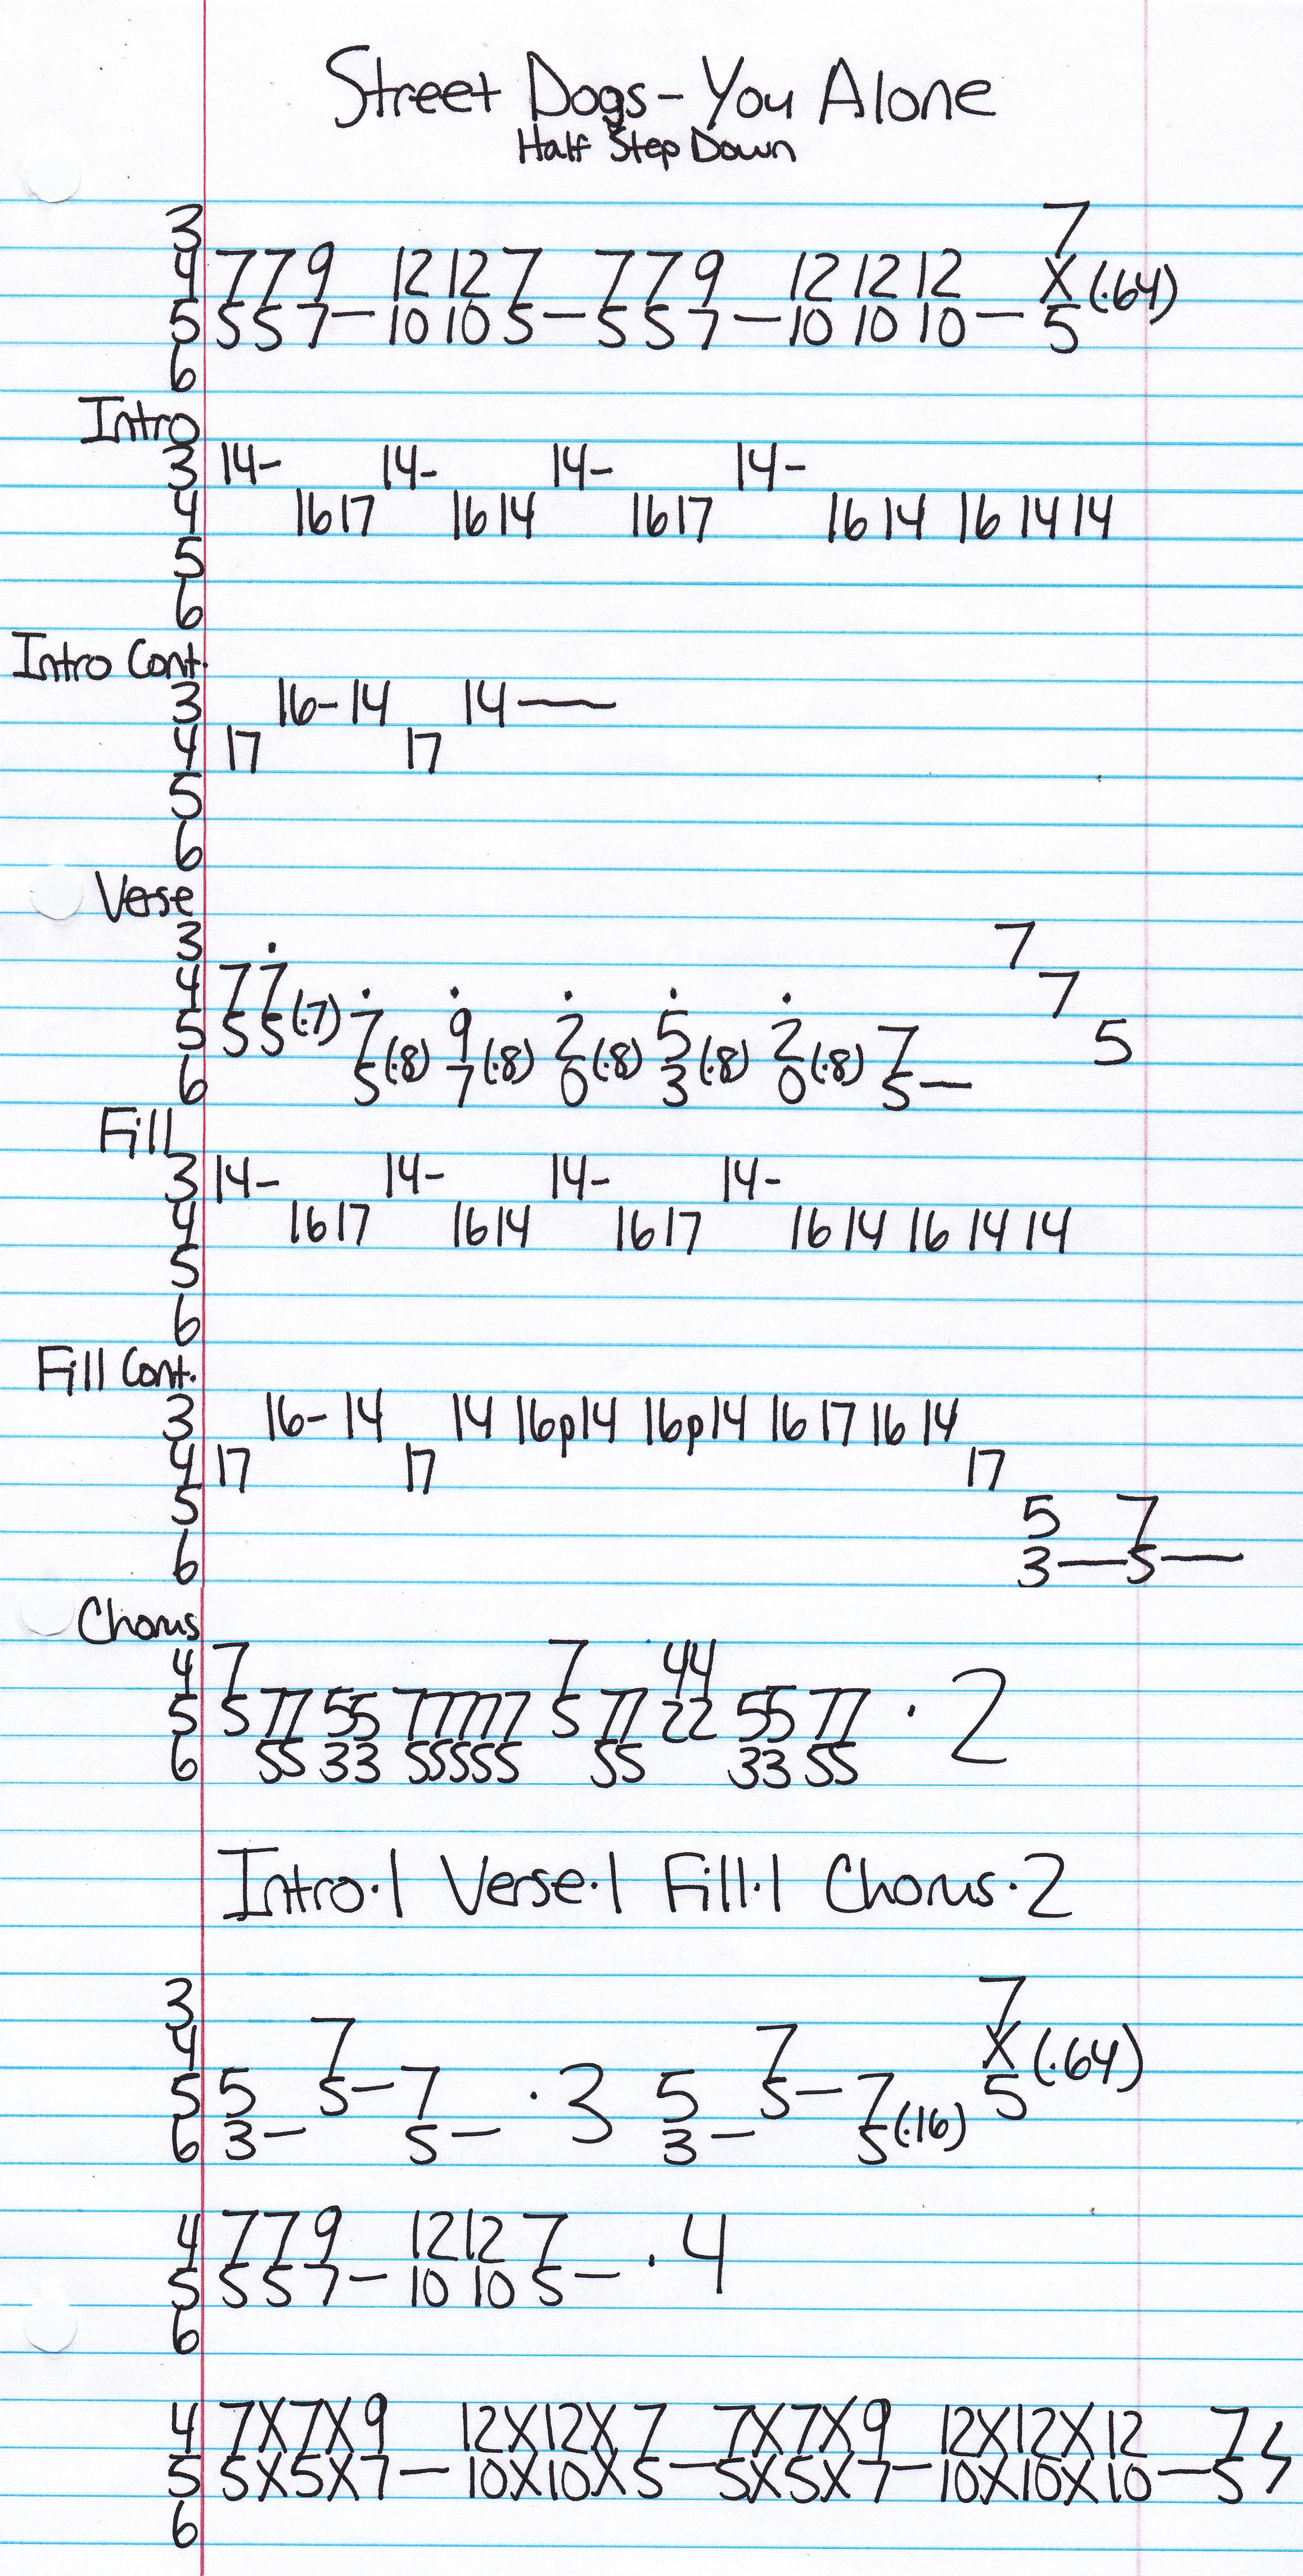 Street Dogs - You Alone
Half Step Down
3 7
4 7 7 9 12 12 7 7 7 9 12 12 12 X (·64)
5 5 5 7 — 10 10 5 — 5 5 7 — 10 10 10 — 5
6
Intro
3 14- 14- 14- 14-
4 16 17 16 14 16 17 16 14 16 14 14
5
6
Intro Cont.
3 16-14 14 —
4 17 17
5
6
Verse
3 7
4 7 7 (·7) 7
5 5 5 7 (·8) 9 (·8) 2 (·8) 5 (·8) 2 (·8) 7 5
6 5 7 0 3 0 5 —
Fill
3 14- 14- 14- 14-
4 16 17 16 14 16 17 16 14 16 14 14
5
6
Fill Cont.
3 16-14 14 16p14 16p14 16 17 16 14
4 17 17 17
5 5 7
6 3 — 5 —
Chorus
4 7 7 44
5 5 77 55 77777 5 77 22 55 77 · 2
6 55 33 55555 55 33 55
Intro·1 Verse·1 Fill·1 Chorus·2
3 7
4 7 7 X (·64)
5 5 5 — 7 · 3 5 5 — 7 5
6 3 — 5 — 3 — 5 (·16)
4 7 7 9 12 12 7 · 4
5 5 5 7 — 10 10 5 —
6
4 7X7X9 12X12X7 7X7X9 12X12X12 7
5 5X5X7 — 10X10X5 — 5X5X7 — 10X10X10 — 5
6